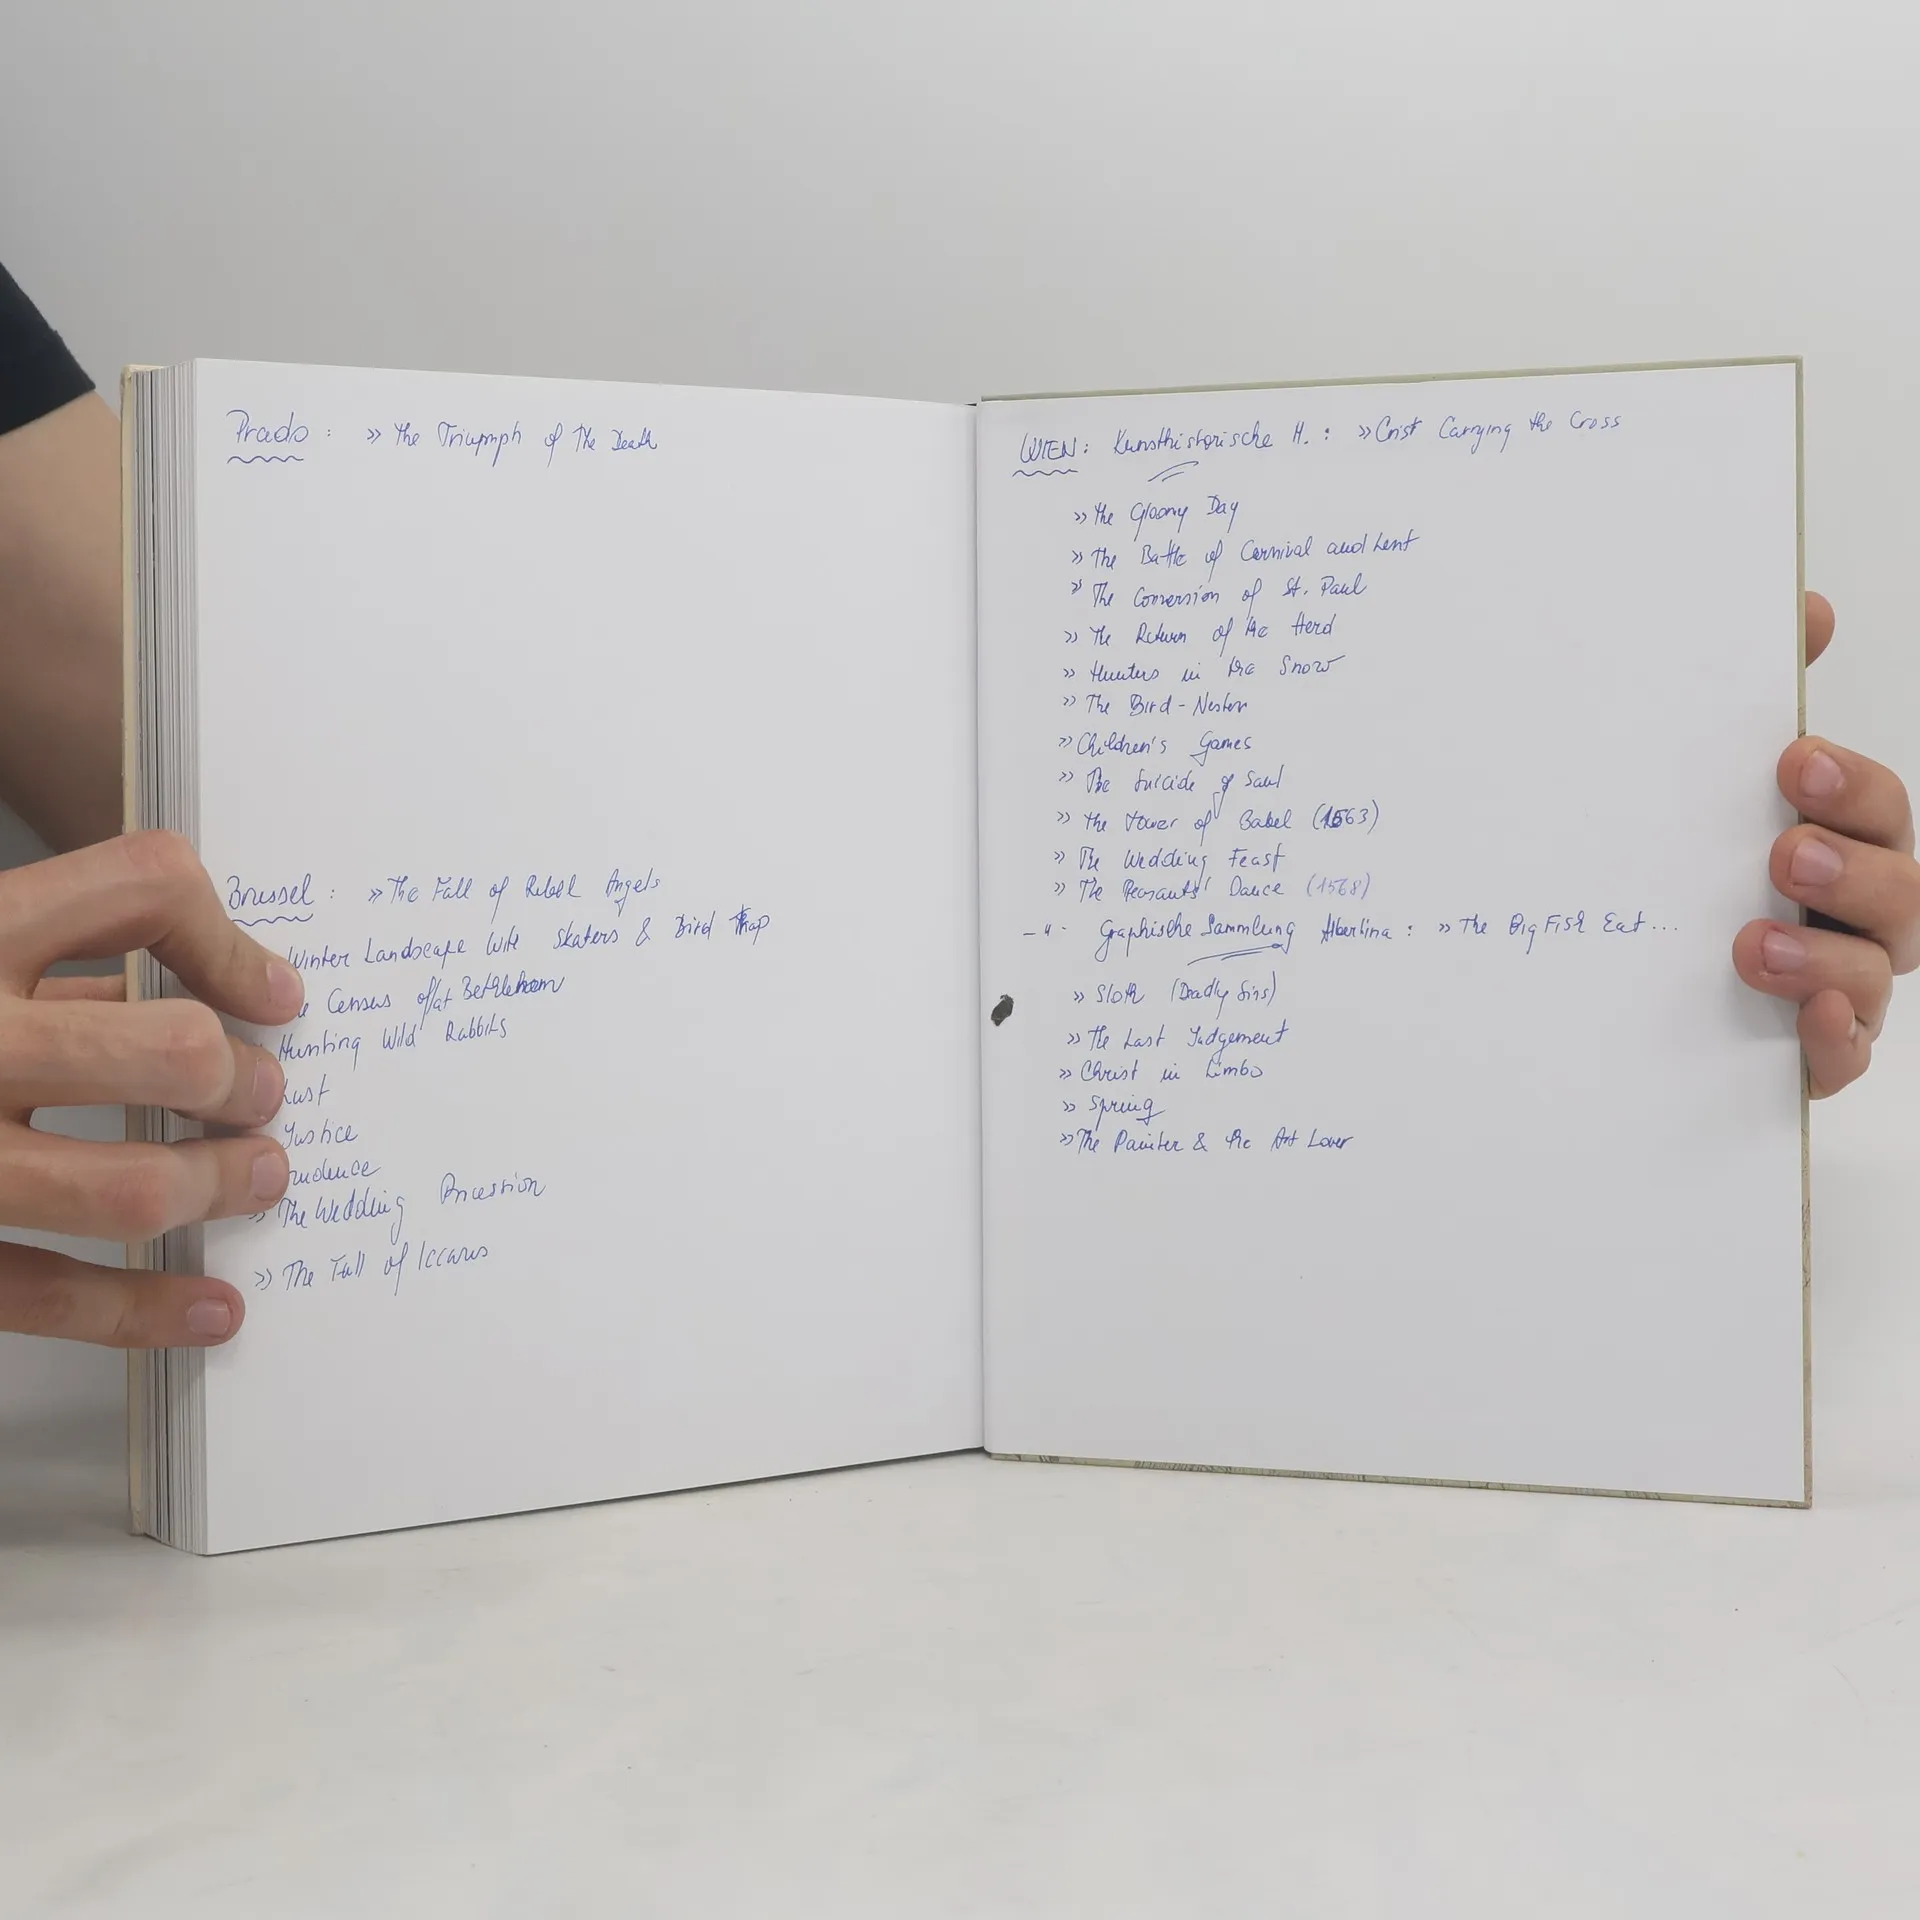 Prado : » The Triupmph of The Death
Brussel : » The Fall of Rebel Angels
Winter Landscape with Skaters & Bird Trap
Census of/at Bethlehem
» Hunting Wild Rabbits
Lust
Justice
rudence
» The Wedding Procession
» The Fall of Iccarus
WIEN : Kunsthistorische H. : » Crist Carrying the Cross
» The Gloomy Day
» The Battle of Carnival and Lent
» The Conversion of St. Paul
» The Return of the Herd
» Hunters in the Snow
» The Bird - Nester
» Children's Games
» The Suicide of Saul
» The Tower of Babel (1563)
» The Wedding Feast
» The Peasants' Dance (1568)
— " - Graphische Sammlung Albertina : » The Big Fish Eat ...
» Sloth (Deadly Sins)
» The Last Judgement
» Christ in Limbo
» Spring
» The Painter & the Art Lover